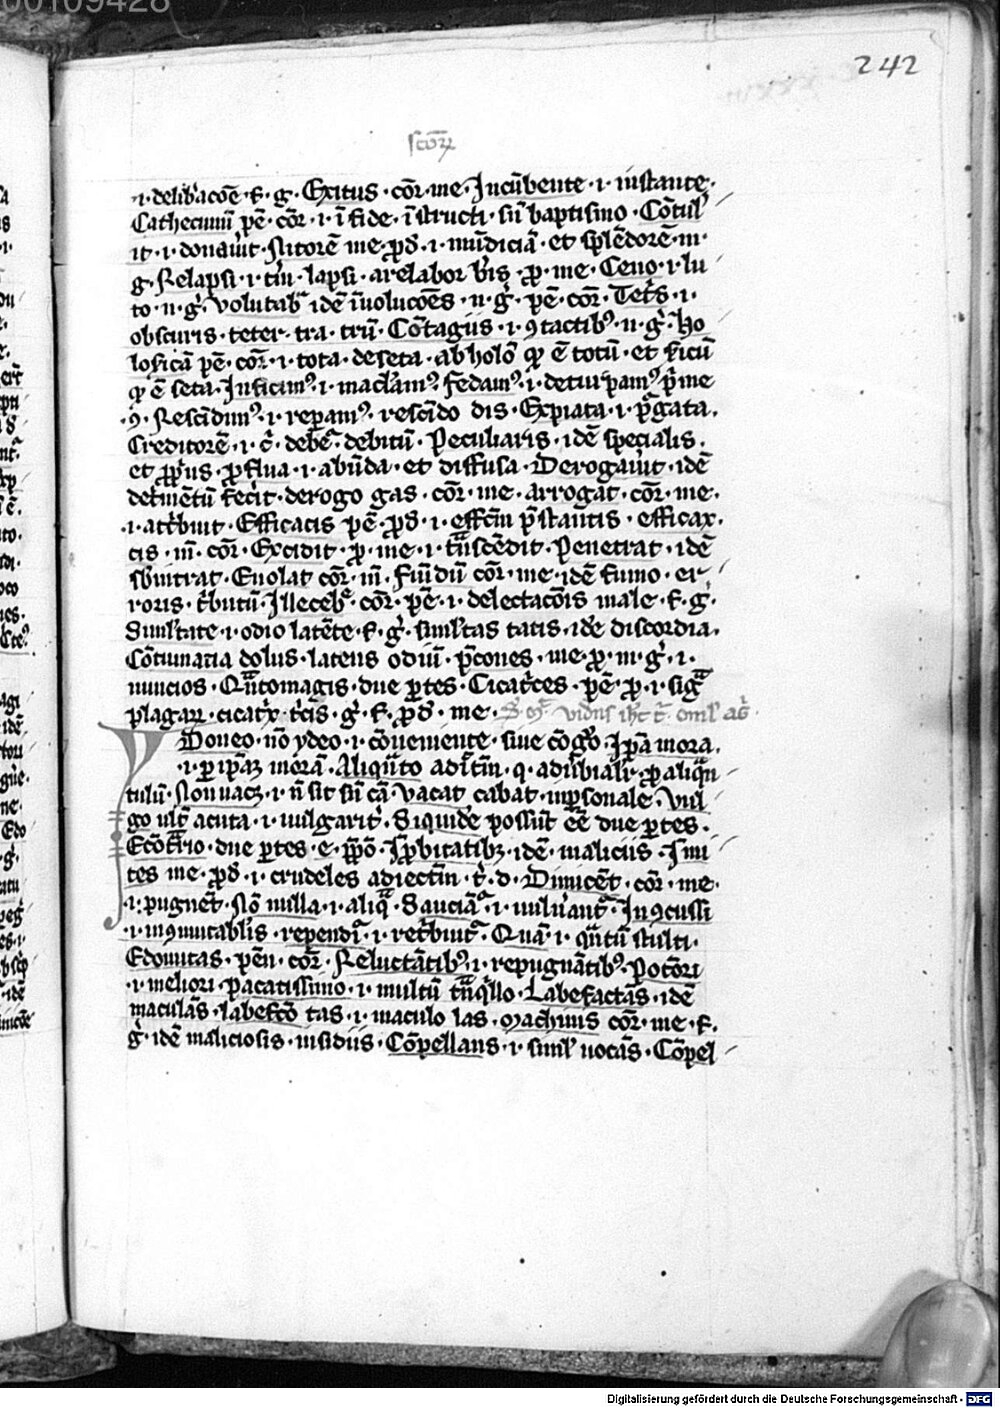 00109428
242
scōꝝ
·i· delib̾acōe ·f· g̾· Exitus · cōr · me · Incūbente · i · instante ·
Cathecumī pē · cōr · i · ī fide · īstructi · sn̄ baptismo · Cōtul
it · i · donauit · Nitorē me · ꝓd̾ · i · mūdiciā · et splēdorē · m ·
g̾ · Relapsi · i · t̾m · lapsi · a relabor b̾is · ꝓ · me · Ceno · i · lu
to · n · g̾ · volutab̾ idē īuolucōes · n · g̾ · pē · cōr · Tet̾s · i ·
obscuris · teter · tra · trū · Cōtagiis · i · ꝯtactibꝰ · n · g̾ · Ho
losicā pē · cōr · i · tota · de seta · ab holō qd ē totū · et sicū
qd ē seta · Inficimꝰ · i · maclamꝰ · fedamꝰ · i · deturpamꝰ p̄me
·ꝯ· Rescīdimꝰ · i · reparamꝰ · rescīdo dis · Expiata · i · purgata ·
Creditorē · i · c̄ · debet̾ · debitū · Peculiaris · idē specialis ·
et ꝓprius · ꝓflua · i · abūda · et diffusa · Derogauit · idē
det̾mētū fecit · derogo gas · cōr · me · arrogat · cōr · me ·
· i · att̾buit · Efficacis pē · ꝓd̾ · i · eff̄cm p̄stantis · efficax ·
cis · m̄ · cōr · Excidit · ꝓ · me · i · t̄nscēdit · Penetrat · idē
sb̾intrat · Euolat cōr · m̄ · Fumidū cōr · me · idē fumo · er
roris · t̾butū · Illeceb̾ · cōr · pē · i · delectacōis male · f · g̾ ·
Simltate · i · odio latēte · f · g̾ · simltas tatis · idē discordia ·
Cōtumatia dolus · latens odiū · p̄cones · me · ꝓ · m · g̾ · i ·
nuncios · Qn̄tomagis · due ꝑtes · Cicat̾ces · pē · ꝓ · i · sig̾
plagaꝝ · cicat̾x · t̾cis · g̾ · f · ꝓd̾ · me ·
Ydoneo · nō ydeo · i · cōueniente · siue cōgruo · Ip̄a mora ·
· i · ꝑ ip̄aꝫ morā · Aliqn̄to · q · adūbialr̄ · ꝓ aliqn̄
tulū · Non uacꝫ · i · n̄ sit sn̄ cā · vacat cabat · inꝑsonale · Vul
go ult̄ acuta · i · uulgarit̾ · Siquidē possūt ēē due ꝑtes ·
Ecōt̾rio · due ꝑtes · e · ꝓpō · Iꝓbitatibꝫ · idē · maliciis · Imi
tes me · ꝓd̾ · i · crudeles adiectm̄ · t̄ · d · Dimicēt · cōr · me ·
· i · pugnēt · Nō nulla · i · aliq̄ · Sauciāt̾ · i · uulnerant̾ · Inꝯcussi
· i · inꝯmutabl̾is · rependit̾ · i · ret̾buit̾ · Quā · i · qn̄tū stulti ·
Edomitas · pēu · cōr · Reluctātibꝰ · i · repugnātibꝰ · Potiori
· i · meliori · pacatissimo · i · multū t̄nq̾llo · Labefactās · idē
maculās · labefctō tas · i · maculo las · Machinis cōr · me · f ·
g̾ · idē maliciosis · insidiis · Cōpellans · i · siml̾ uocās · Cōpel
Digitalisierung gefördert durch die Deutsche Forschungsgemeinschaft - DFG